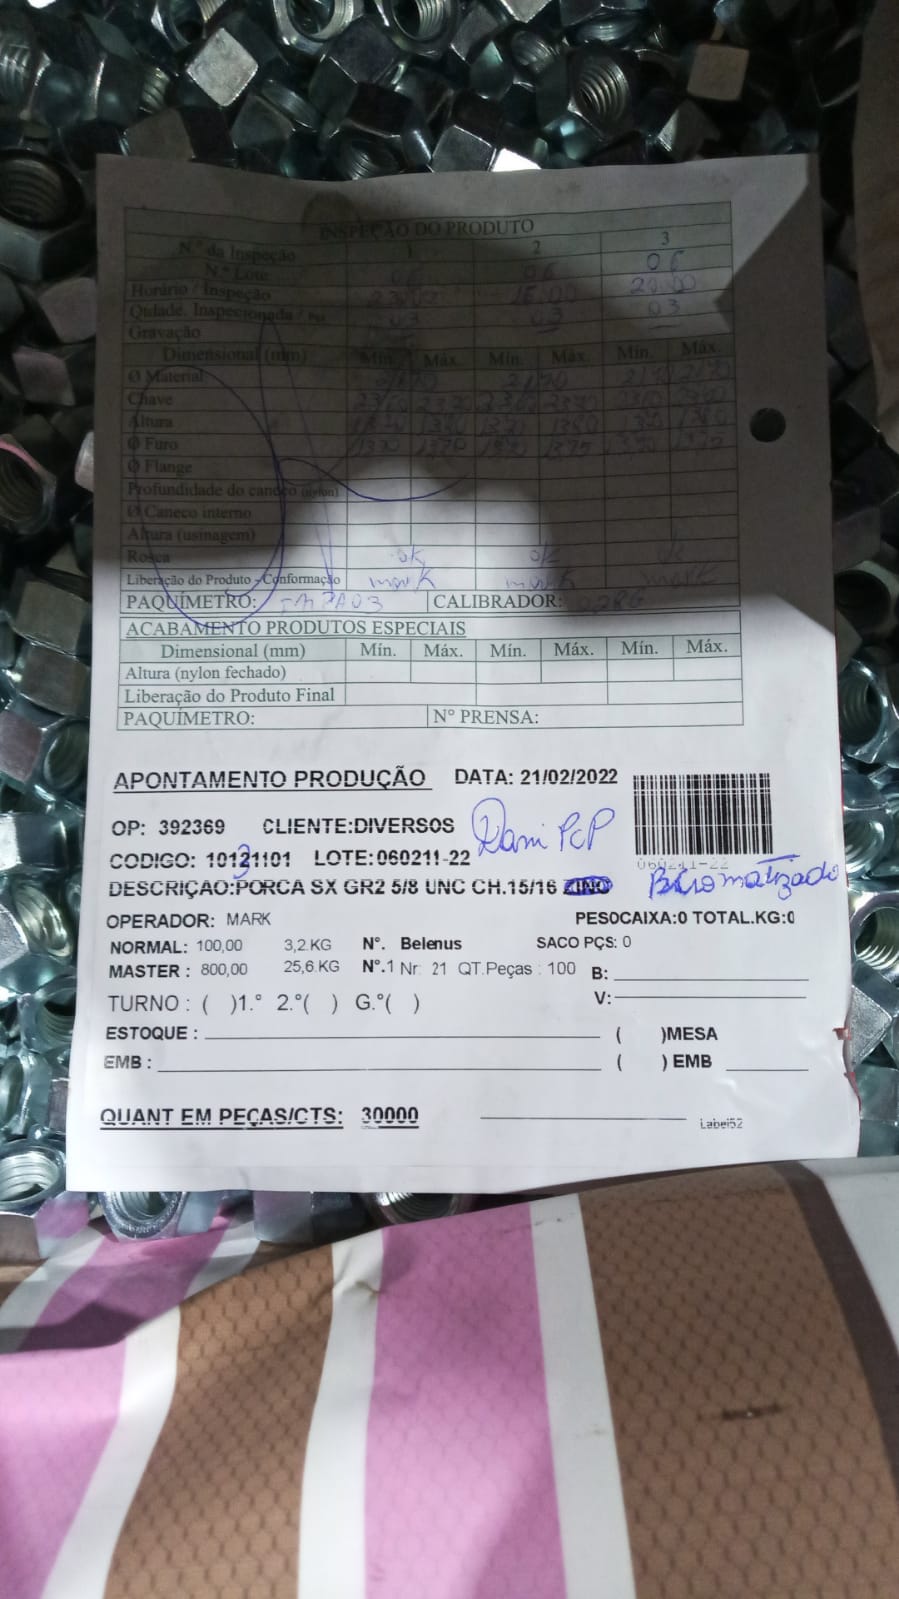 INSPEÇÃO DO PRODUTO
N.º da Inspeção 1 2 3
N.º Lote 06 06 06
Horário / Inspeção 16:00 20:00
Qtidade. Inspecionada / 03 03 03
Gravação
Dimensional (mm) Mín. Máx. Mín. Máx. Mín. Máx.
Ø Material
Chave
Altura
Ø Furo
Ø Flange
Profundidade do caneco (nylon)
Ø Caneco interno
Altura (usinagem)
Rosca ok ok ok
Liberação do Produto - Conformação mark mark mark
PAQUÍMETRO: CALIBRADOR:
ACABAMENTO PRODUTOS ESPECIAIS
Dimensional (mm) Mín. Máx. Mín. Máx. Mín. Máx.
Altura (nylon fechado)
Liberação do Produto Final
PAQUÍMETRO: Nº PRENSA:
APONTAMENTO PRODUÇÃO DATA: 21/02/2022
OP: 392369 CLIENTE:DIVERSOS Dani PCP
060211-22
CODIGO: 10121101 LOTE:060211-22
3
Bicromatizado
DESCRIÇÃO:PORCA SX GR2 5/8 UNC CH.15/16 ZINC
OPERADOR: MARK PESOCAIXA:0 TOTAL.KG:0
NORMAL: 100,00 3,2.KG Nº. Belenus SACO PÇS: 0
MASTER : 800,00 25,6.KG Nº.1 Nr: 21 QT.Peças : 100 B:
V:
TURNO : ( )1.º 2.º( ) G.º( )
ESTOQUE : ( )MESA
EMB : ( ) EMB
QUANT EM PEÇAS/CTS: 30000
Label52